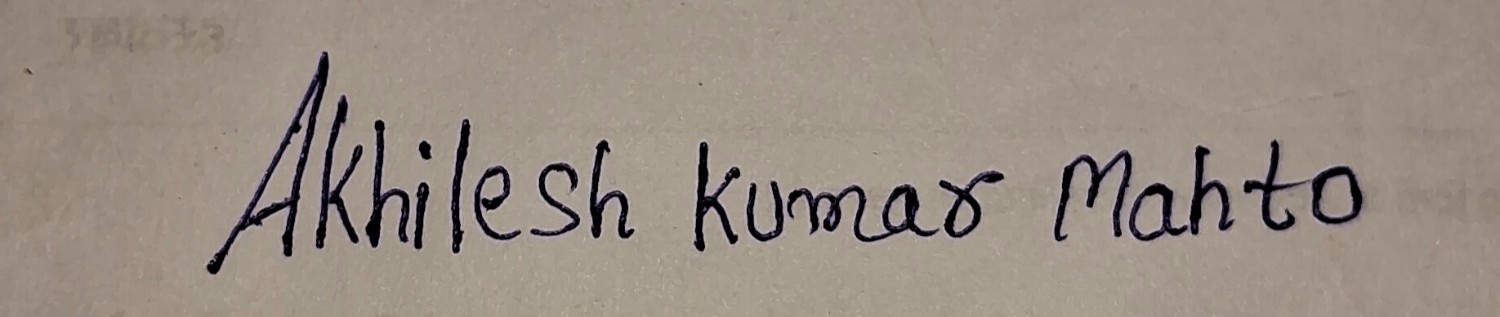 Akhilesh Kumar Mahto